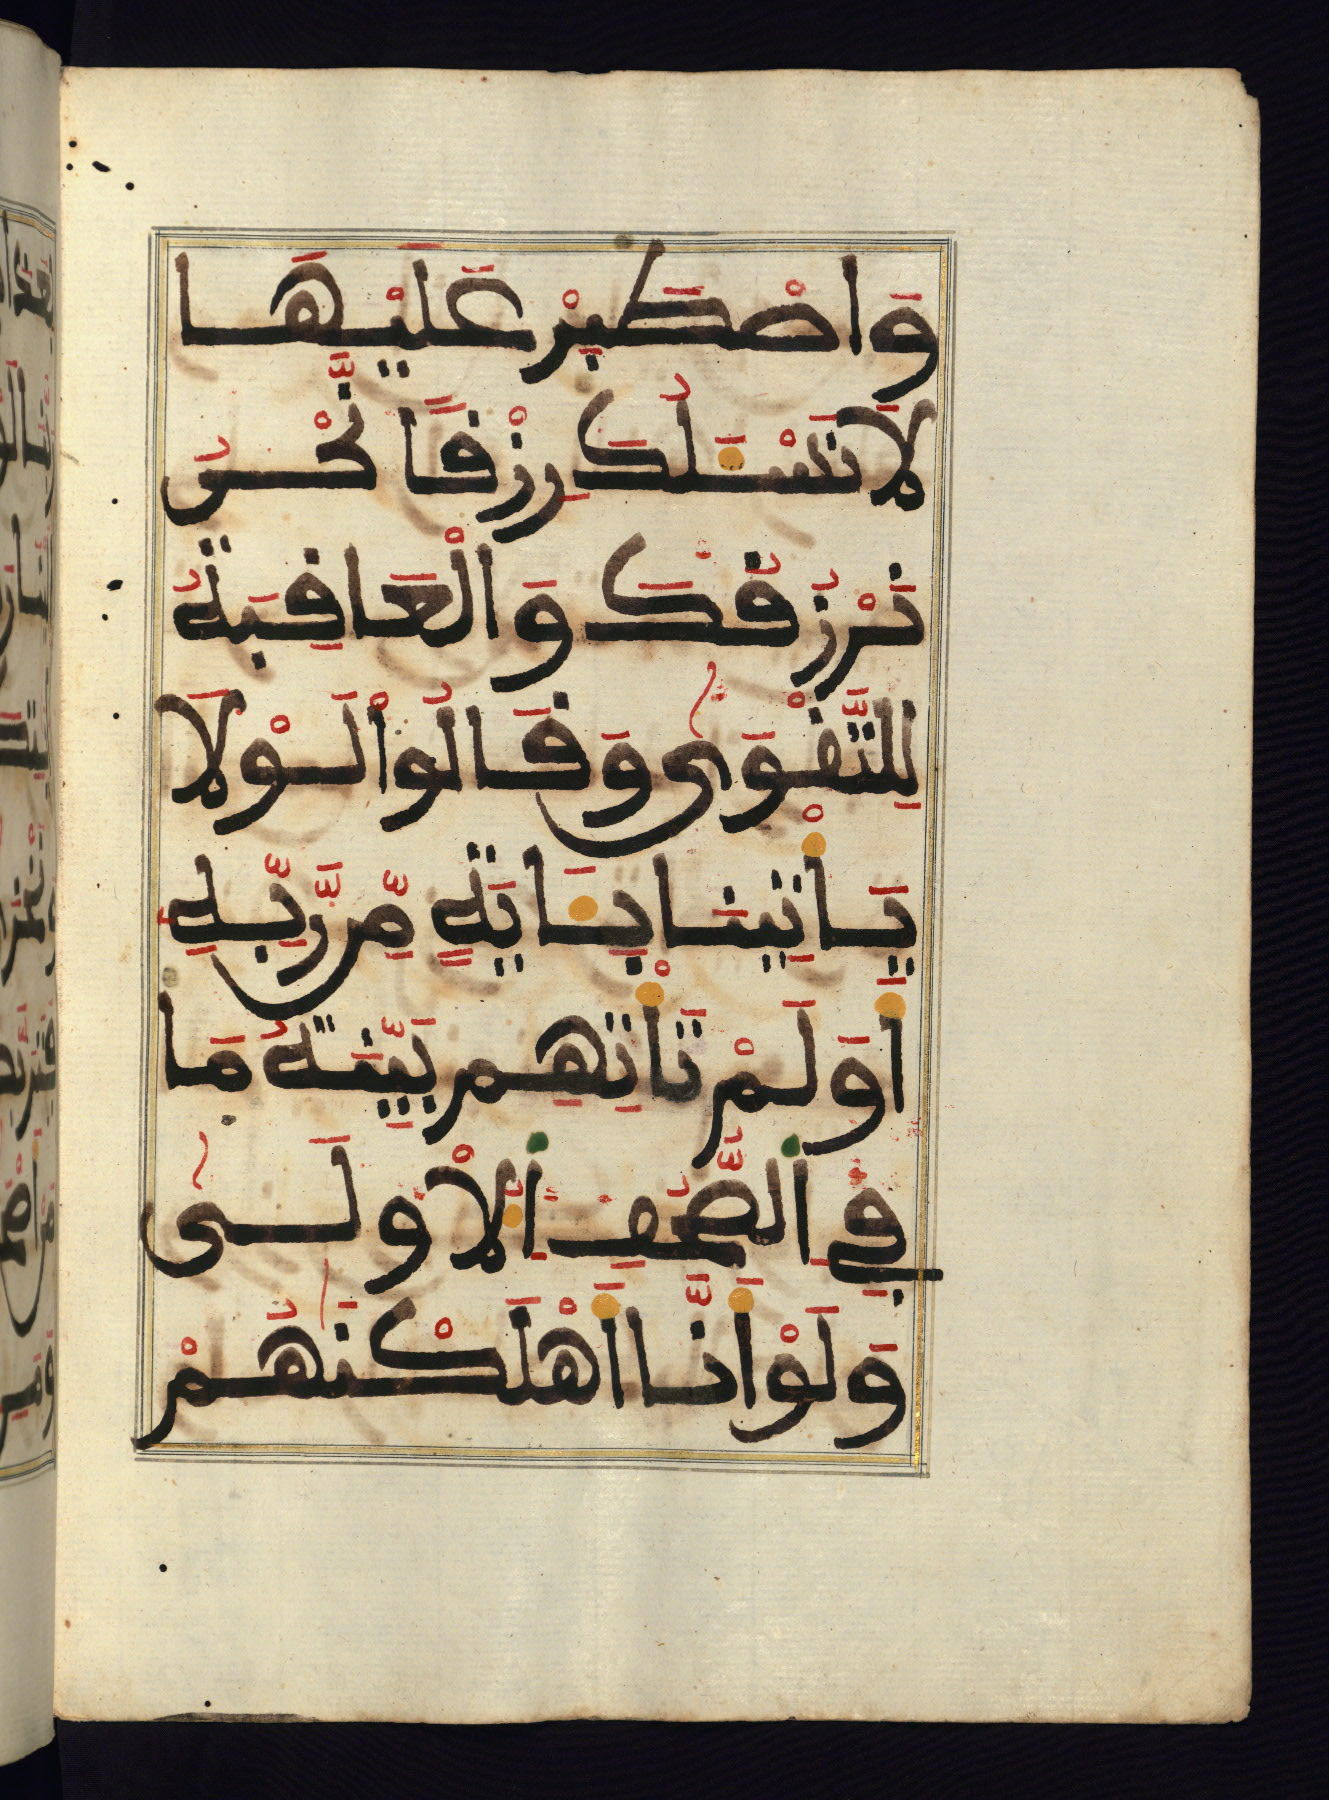 وَاصْطَبِرْ عَلَيْهَا
لَا نَسْـَٔلُكَ رِزْقًا نَّحْنُ
نَرْزُقُكَ وَالْعَافِبَةُ
لِلتَّقْوَىٰ وَقَالُواْ لَوْلَا
يَأْتِينَا بِـَٔايَةٍ مِّن رَّبِّهِ
أَوَلَمْ تَأْتِهِم بَيِّنَةُ مَا
فِي الصُّحُفِ الْأُولَىٰ
وَلَوْ أَنَّا أَهْلَكْنَٰهُمْ